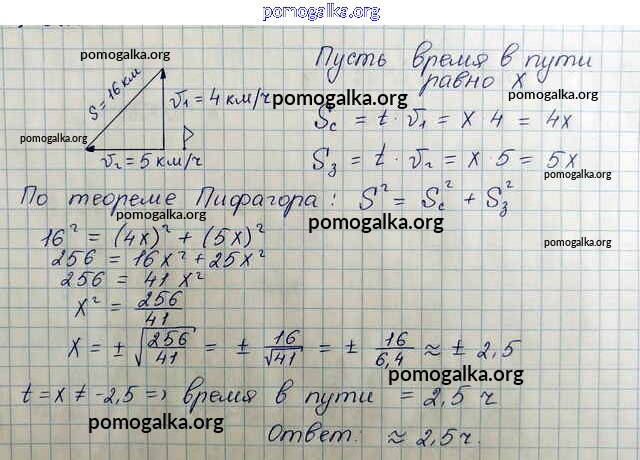 pomogalka.org
pomogalka.org
S = 16 км
v₁ = 4 км/ч
pomogalka.org
v₂ = 5 км/ч
Пусть время в пути
равно x
pomogalka.org
Sс = t · v₁ = x · 4 = 4x
pomogalka.org
Sз = t · v₂ = x · 5 = 5x
pomogalka.org
По теореме Пифагора: S² = Sс² + Sз²
pomogalka.org
pomogalka.org
16² = (4x)² + (5x)²
pomogalka.org
256 = 16x² + 25x²
256 = 41x²
x² = 256/41
x = ± √(256/41) = ± 16/√41 = ± 16/6,4 ≈ ± 2,5
pomogalka.org
t = x ≠ -2,5 => время в пути = 2,5 ч
pomogalka.org
Ответ: ≈ 2,5 ч.